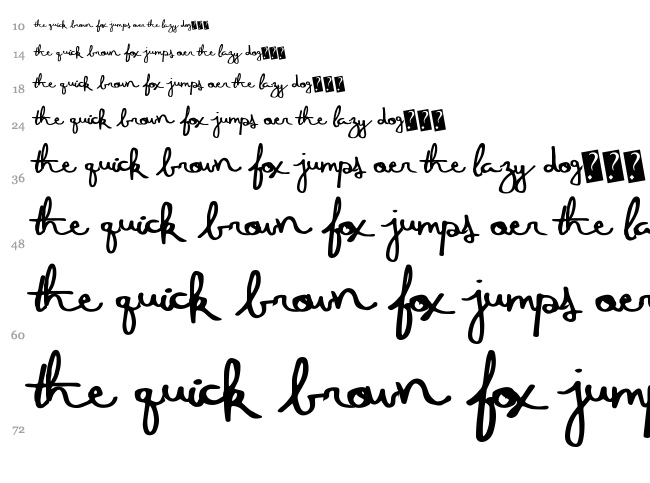 10 the quick brown fox jumps oer the lazy dog???
14 the quick brown fox jumps oer the lazy dog???
18 the quick brown fox jumps oer the lazy dog???
24 the quick brown fox jumps oer the lazy dog???
36 the quick brown fox jumps oer the lazy dog???
48 the quick brown fox jumps oer the la
60 the quick brown fox jumps oer
72 the quick brown fox jump